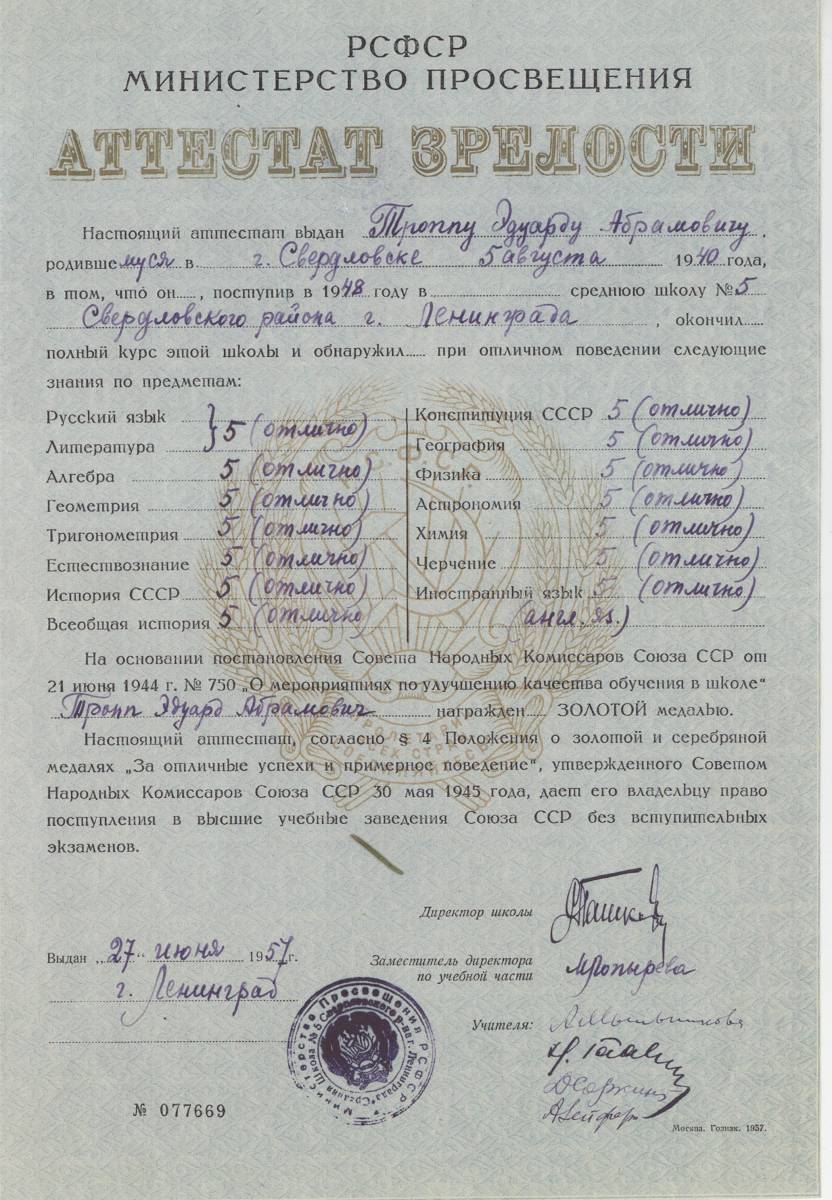 РСФСР
МИНИСТЕРСТВО ПРОСВЕЩЕНИЯ
АТТЕСТАТ ЗРЕЛОСТИ
Настоящий аттестат выдан Троппу Эдуарду Абрамовичу,
родившемуся в г. Свердловске 5 августа 1940 года,
в том, что он, поступив в 1948 году в среднюю школу № 5
Свердловского района г. Ленинграда, окончил
полный курс этой школы и обнаружил при отличном поведении следующие
знания по предметам:
Русский язык
Литература } 5 (отлично)
Алгебра 5 (отлично)
Геометрия 5 (отлично)
Тригонометрия 5 (отлично)
Естествознание 5 (отлично)
История СССР 5 (отлично)
Всеобщая история 5 (отлично)
Конституция СССР 5 (отлично)
География 5 (отлично)
Физика 5 (отлично)
Астрономия 5 (отлично)
Химия 5 (отлично)
Черчение 5 (отлично)
Иностранный язык 5 (отлично)
(англ. яз.)
На основании постановления Совета Народных Комиссаров Союза ССР от
21 июня 1944 г. № 750 „О мероприятиях по улучшению качества обучения в школе“
Тропп Эдуард Абрамович награжден ЗОЛОТОЙ медалью.
Настоящий аттестат, согласно § 4 Положения о золотой и серебряной
медалях „За отличные успехи и примерное поведение“, утвержденного Советом
Народных Комиссаров Союза ССР 30 мая 1945 года, дает его владельцу право
поступления в высшие учебные заведения Союза ССР без вступительных
экзаменов.
Директор школы
Выдан „27“ июня 1957 г.
г. Ленинград
Заместитель директора
по учебной части
Учителя:
Министерство Просвещения РСФСР
Средняя Школа № 5 Свердловского р-на г. Ленинграда
№ 077669
Москва. Гознак. 1957.